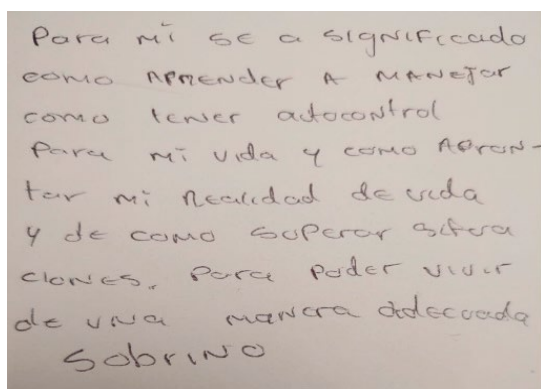 Para mi se a significado
como aprender a manejar
como tener autocontrol
Para mi vida y como afron-
tar mi realidad de vida
y de como superar situa
ciones. Para poder vivir
de una manera adecuada
Sobrino